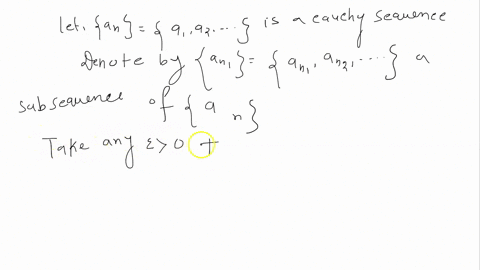 let. {an} = { a1, a2, ....} is a cauchy sequence
Denote by {an1} = { an1, an2, ....} a
subsequence of { a n }
Take any ε > 0 +